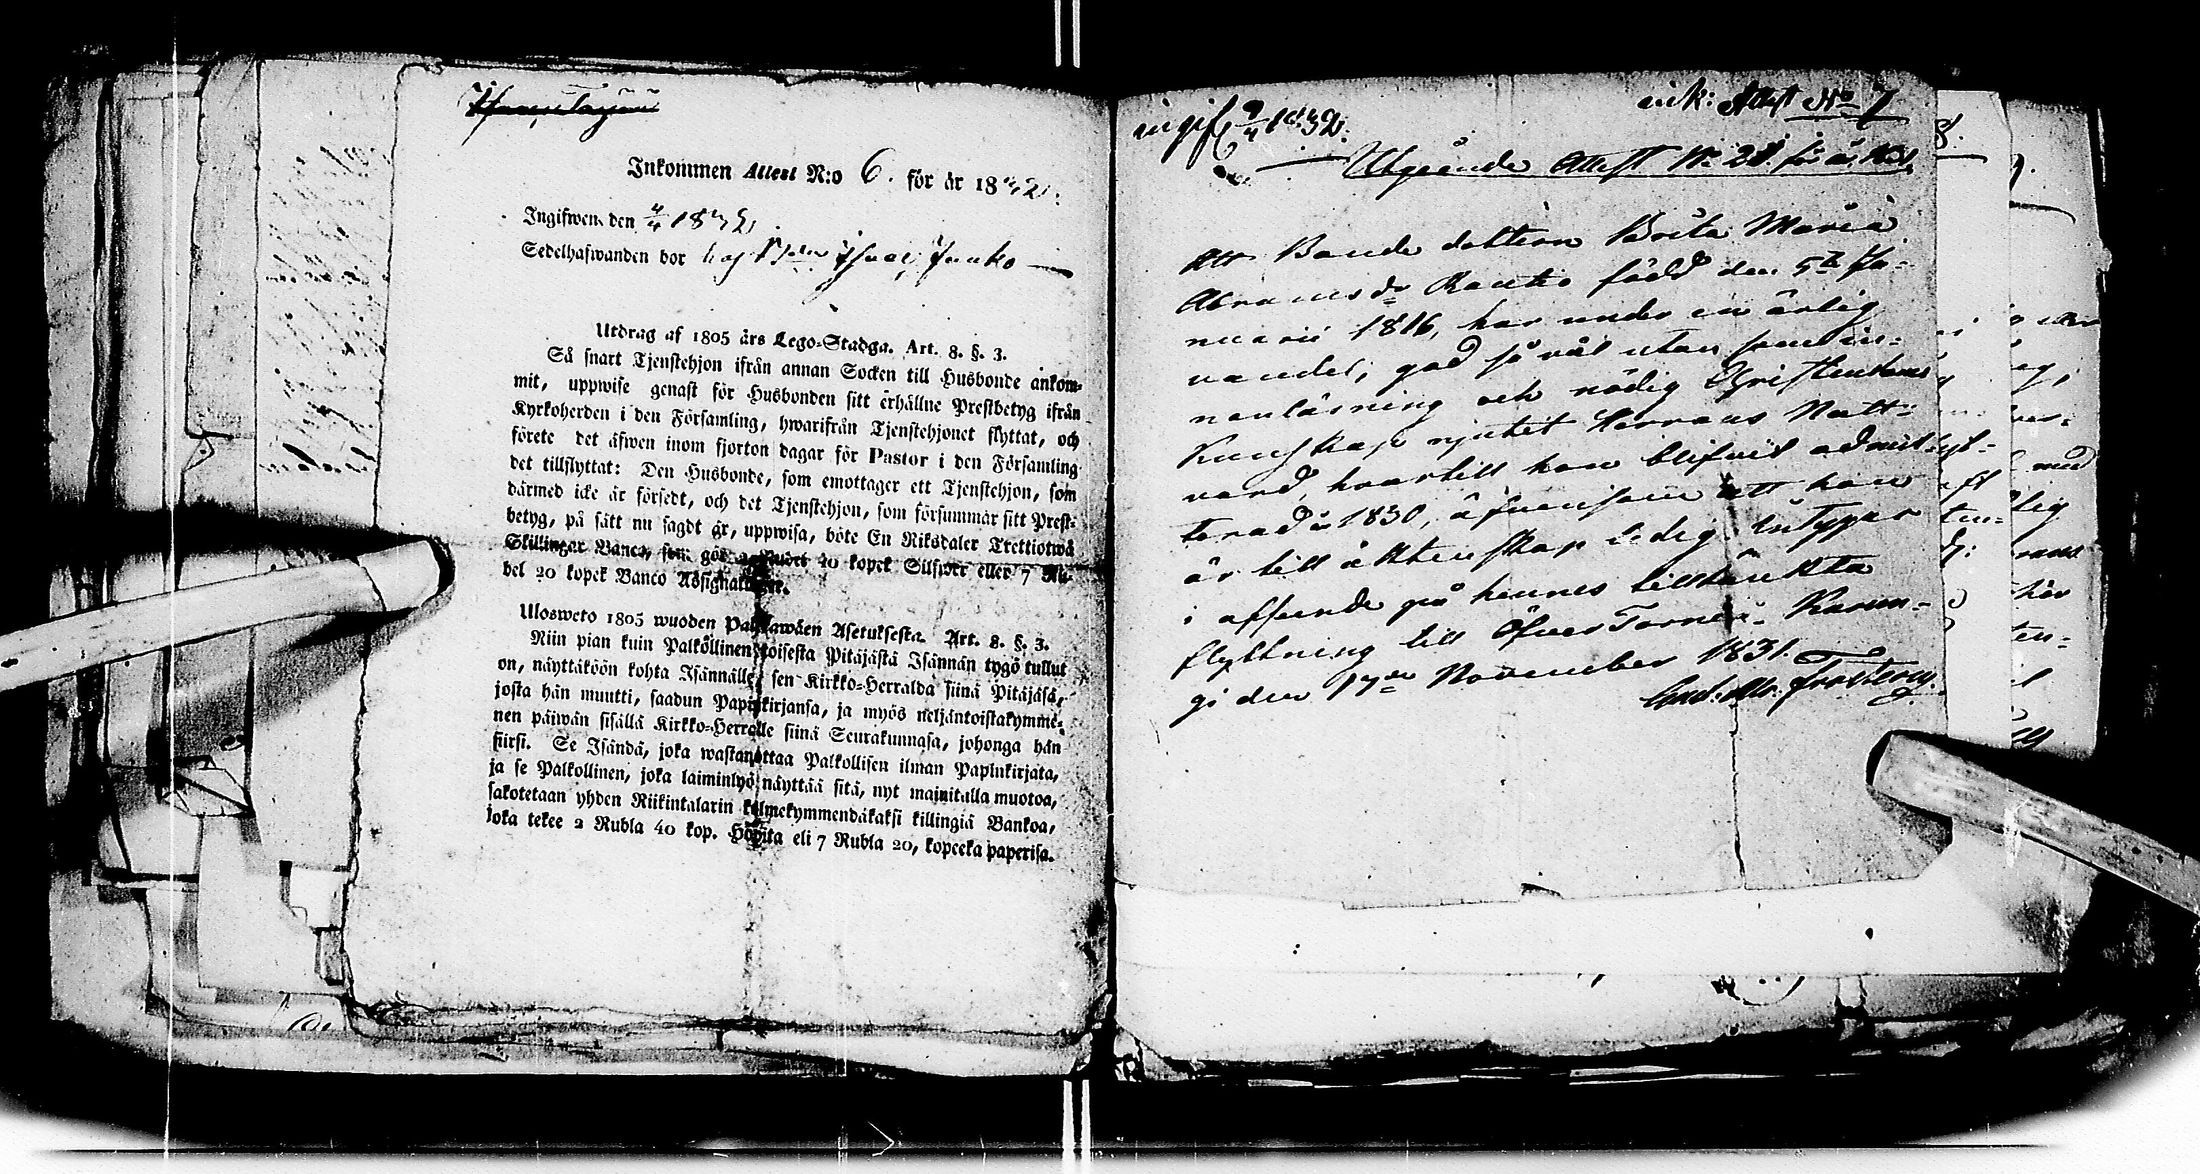 Inkommen Attest N:o 6. för år 1832.
Ingifwen den 4/4 1832.
Sedelhafwanden bor hos
Utdrag af 1805 års Lego-Stadga. Art. 8. §. 3.
Så snart Tjenstehjon ifrån annan Socken till Husbonde ankom-
mit, uppwise genast för Husbonden sitt erhållne Prestbetyg ifrån
Kyrkoherden i den Församling, hwarifrån Tjenstehjonet flyttat, och
förete det äfwen inom fjorton dagar för Pastor i den Församling
det tillflyttat: Den Husbonde, som emottager ett Tjenstehjon, som
därmed icke är försedt, och det Tjenstehjon, som försummar sitt Prest-
betyg, på sätt nu sagdt är, uppwisa, böte En Riksdaler Trettiotwå
Skillingar Banco, som gör 2 Rubel 40 kopek Silfwer eller 7 Ru-
bel 20 kopek Banco Assignationer.
Ulosweto 1805 wuoden Palkawäen Asetuksesta. Art. 8. §. 3.
Niin pian kuin Palkollinen toisesta Pitäjästä Isännän tygö tullut
on, näyttäköön kohta Isännälle, sen Kirkko-Herralda siinä Pitäjäsä,
josta hän muutti, saadun Papinkirjansa, ja myös neljäntoistakymme-
nen päiwän sisällä Kirkko-Herralle siinä Seurakunnasa, johonga hän
siirsi. Se Isändä, joka wastanottaa Palkollisen ilman Papinkirjata,
ja se Palkollinen, joka laiminlyö näyttää sitä, nyt mainitulla muotoa,
sakotetaan yhden Riikintalarin kolmekymmendäkaksi killingiä Bankoa,
joka tekee 2 Rubla 40 kop. Höpita eli 7 Rubla 20, kopeeka paperisa.
ingif 9/4 1832.
ink: Attest No 7
Utgående Attest No 28 för år 1831.
Att Bonde dottern Brita Maria
Abrams dr Rautio född den 5te Ja-
nuarii 1816, har under en ärlig
vandel, god så väl utan som in-
nanläsning och nödig Christendoms
Kunskap njutit Herrans Natt-
vard, hvartill hon blifvit admit-
terad år 1830, äfvensom att hon
är till äktenskap ledig intygas
i afseende på hennes tilltänkta
flyttning till Öfver Torneå. Karun-
gi den 17de November 1831.